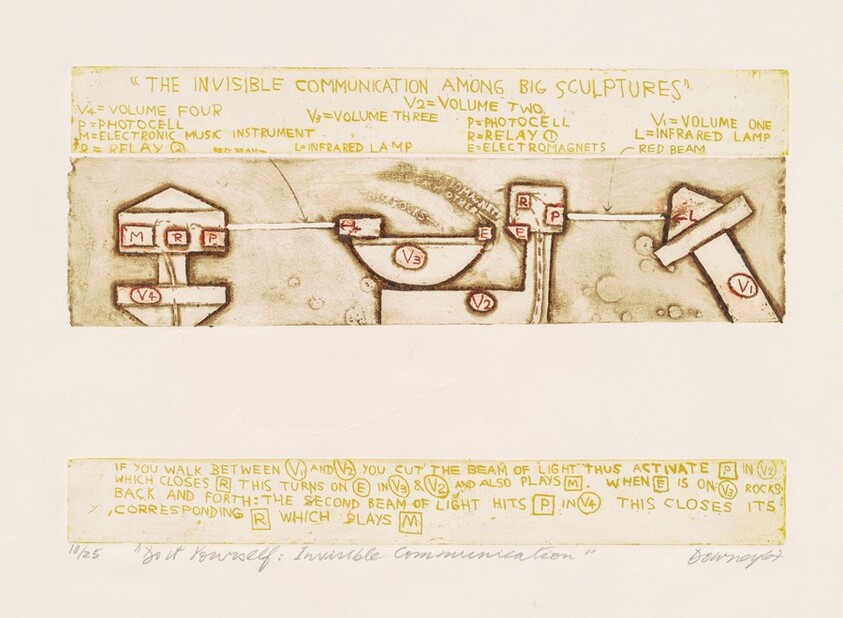 "THE INVISIBLE COMMUNICATION AMONG BIG SCULPTURES"
V4=VOLUME FOUR
P=PHOTOCELL
M=ELECTRONIC MUSIC INSTRUMENT
R=RELAY ②
RED BEAM
V3=VOLUME THREE
L=INFRARED LAMP
V2=VOLUME TWO
P=PHOTOCELL
R=RELAY ①
E=ELECTROMAGNETS
V1=VOLUME ONE
L=INFRARED LAMP
RED BEAM
M R P
V4
L
V3
E E
R P
V2
L
V1
IF YOU WALK BETWEEN V1 AND V2 YOU CUT THE BEAM OF LIGHT THUS ACTIVATE P IN V2
WHICH CLOSES R THIS TURNS ON E IN V3 & V2 AND ALSO PLAYS M. WHEN E IS ON V3 ROCKS
BACK AND FORTH: THE SECOND BEAM OF LIGHT HITS P IN V4 THIS CLOSES ITS
CORRESPONDING R WHICH PLAYS M
10/25 "Do it Yourself: Invisible Communication" Downey 67